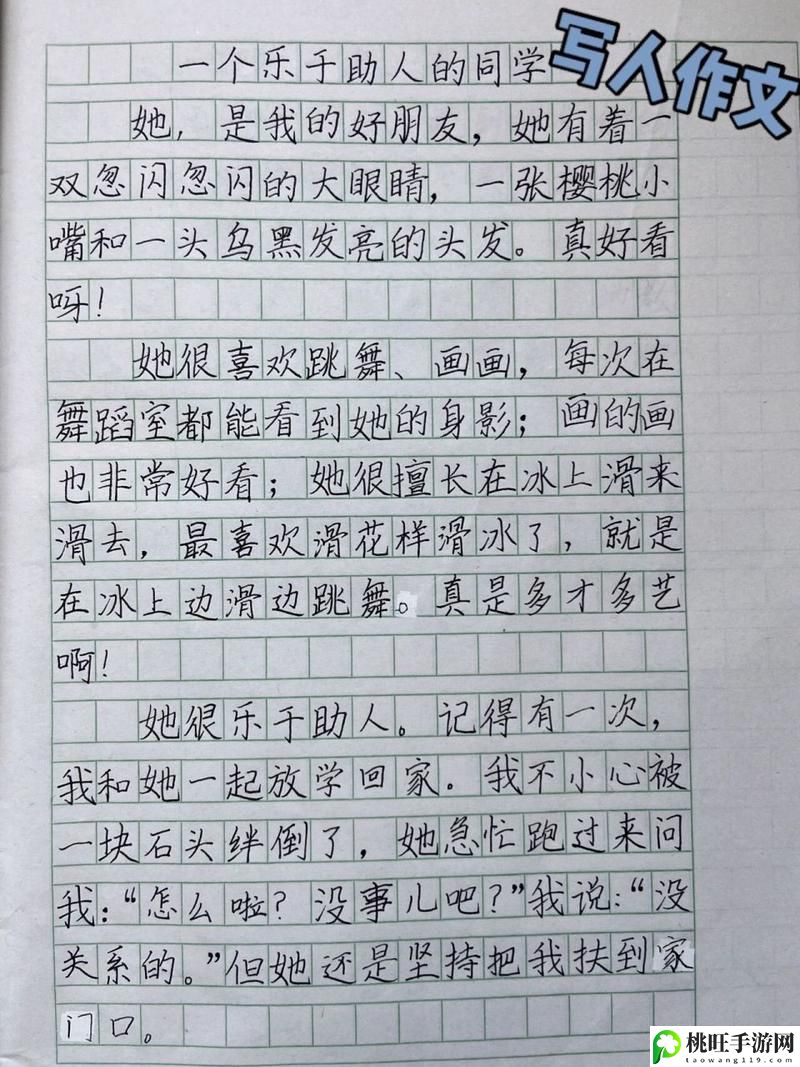 写人作文
一个乐于助人的同学
她，是我的好朋友，她有着一
双忽闪忽闪的大眼睛，一张樱桃小
嘴和一头乌黑发亮的头发。真好看
呀！
她很喜欢跳舞、画画，每次在
舞蹈室都能看到她的身影；画的画
也非常好看；她很擅长在冰上滑来
滑去，最喜欢滑花样滑冰了，就是
在冰上边滑边跳舞。真是多才多艺
啊！
她很乐于助人。记得有一次，
我和她一起放学回家。我不小心被
一块石头绊倒了，她急忙跑过来问
我：“怎么啦？没事儿吧？”我说：“没
关系的。”但她还是坚持把我扶到家
门口。
桃旺手游网
taowang119.com